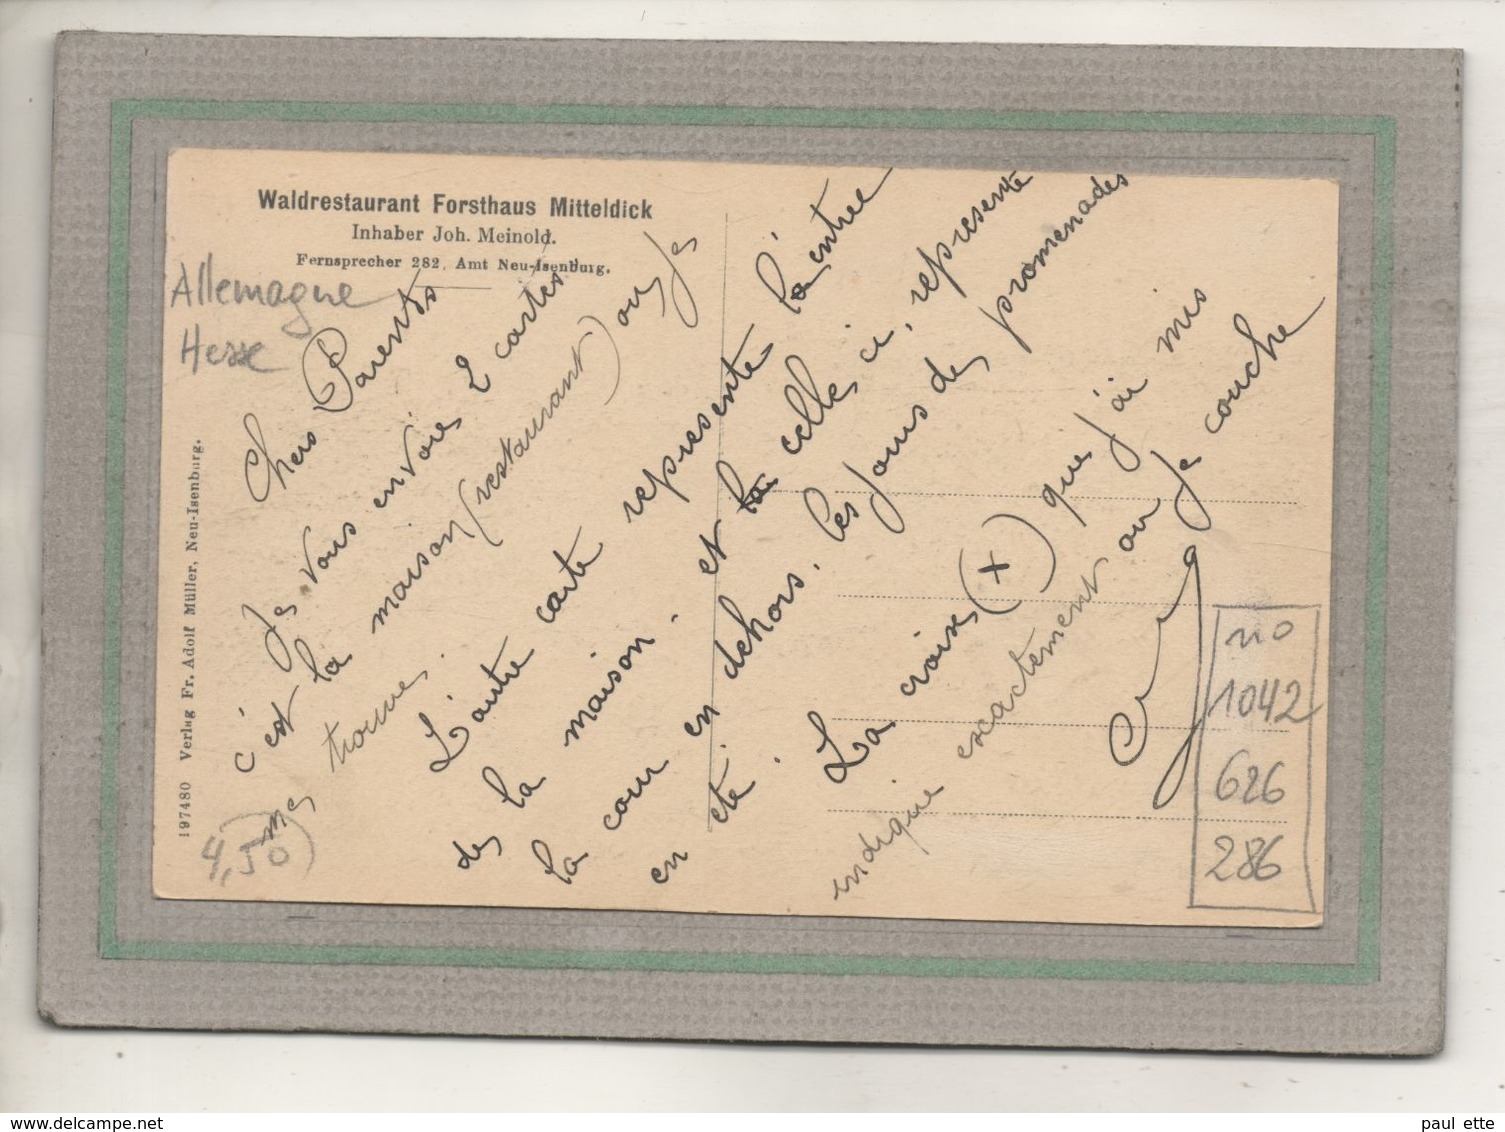 Waldrestaurant Forsthaus Mitteldick
Inhaber Joh. Meinold.
Fernsprecher 282, Amt Neu-Isenburg.
Allemagne
Hesse
197480 Verlag Fr. Adolf Müller, Neu-Isenburg.
Chers Parents
Je vous envoie 2 cartes
c'est la maison (restaurant) ou je
me trouve.
L'autre carte represente la entree
de la maison. et la celle ci, represente
la cour en dehors. les jours de promenades
en eté. La croix (+) que j'ai mis
indique exactement ou je couche
4,50
no
1042
626
286
delcampe.net
paul ette